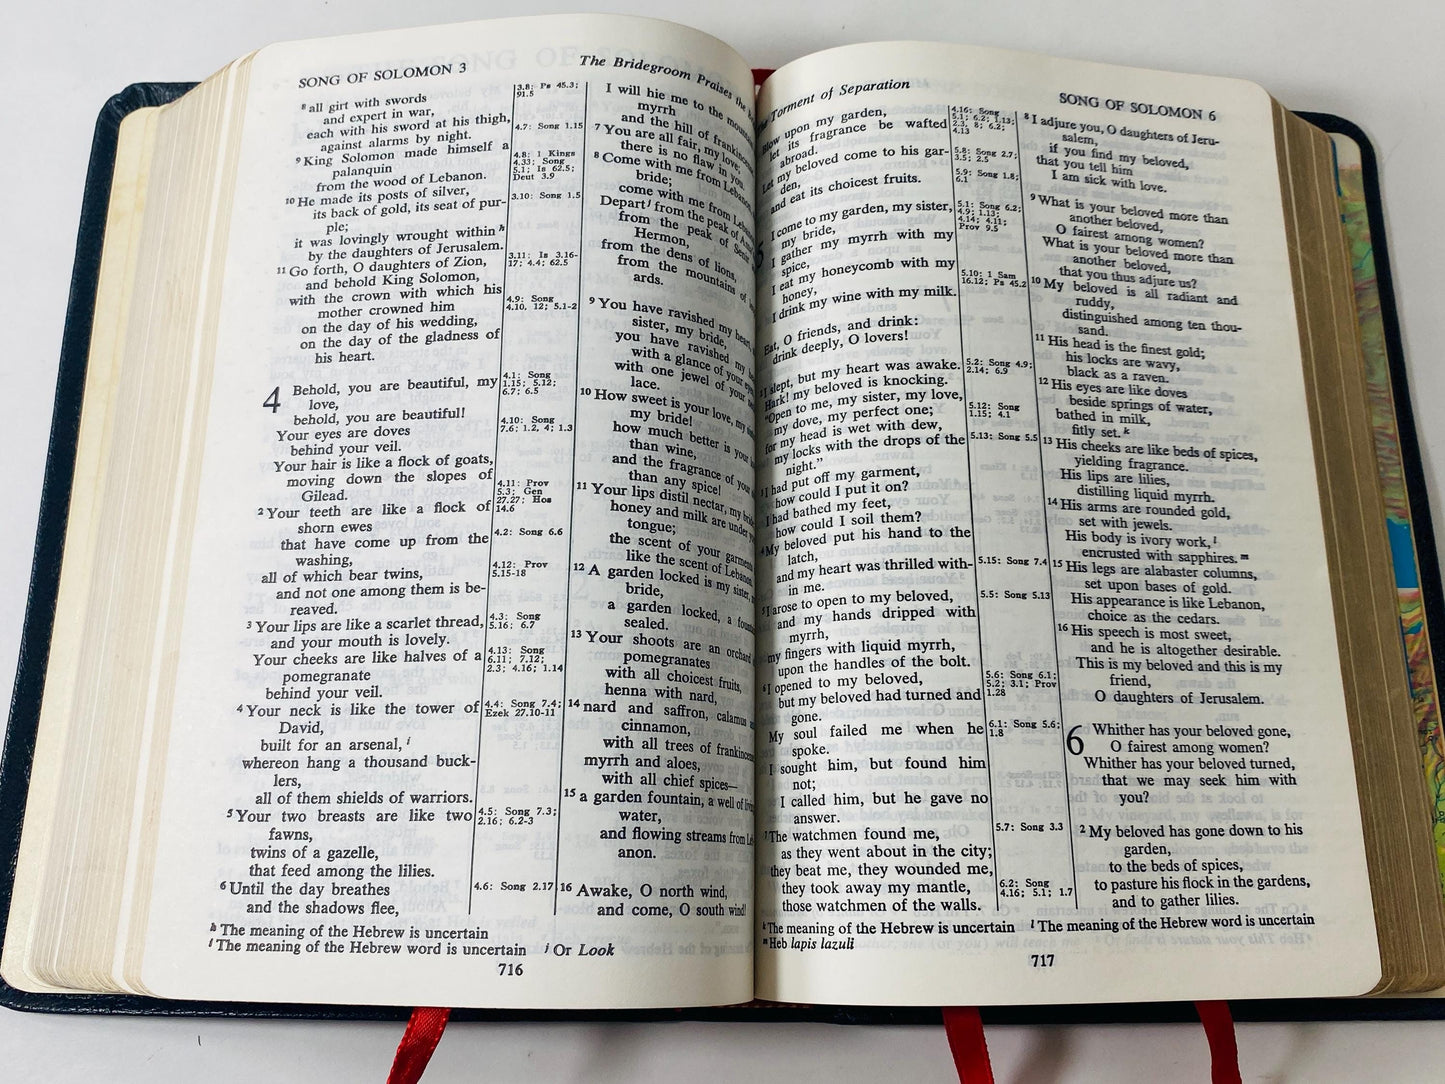 SONG OF SOLOMON 3
The Bridegroom Praises the
8 all girt with swords
and expert in war,
each with his sword at his thigh,
against alarms by night.
9 King Solomon made himself a
palanquin
from the wood of Lebanon.
10 He made its posts of silver,
its back of gold, its seat of pur-
ple;
it was lovingly wrought within h
by the daughters of Jerusalem.
11 Go forth, O daughters of Zion,
and behold King Solomon,
with the crown with which his
mother crowned him
on the day of his wedding,
on the day of the gladness of
his heart.
4 Behold, you are beautiful, my
love,
behold, you are beautiful!
Your eyes are doves
behind your veil.
Your hair is like a flock of goats,
moving down the slopes of
Gilead.
2 Your teeth are like a flock of
shorn ewes
that have come up from the
washing,
all of which bear twins,
and not one among them is be-
reaved.
3 Your lips are like a scarlet thread,
and your mouth is lovely.
Your cheeks are like halves of a
pomegranate
behind your veil.
4 Your neck is like the tower of
David,
built for an arsenal, i
whereon hang a thousand buck-
lers,
all of them shields of warriors.
5 Your two breasts are like two
fawns,
twins of a gazelle,
that feed among the lilies.
6 Until the day breathes
and the shadows flee,
3.8: Ps 45.3;
91.5
4.7: Song 1.15
4.8: 1 Kings
4.33; Song
5.1; Is 62.5;
Deut 3.9
3.10: Song 1.5
3.11: Is 3.16-
17; 4.4; 62.5
4.9: Song
4.10, 12; 5.1-2
4.1: Song
1.15; 5.12;
6.7; 6.5
4.10: Song
7.6; 1.2, 4; 1.3
4.11: Prov
5.3; Gen
27.27; Hos
14.6
4.2: Song 6.6
4.12: Prov
5.15-18
4.3: Song
5.16; 6.7
4.13: Song
6.11; 7.12;
2.3; 4.16; 1.14
4.4: Song 7.4;
Ezek 27.10-11
4.5: Song 7.3;
2.16; 6.2-3
4.6: Song 2.17
I will hie me to the
myrrh
and the hill of
7 You are all fair, my love;
there is no flaw in you.
8 Come with me from Lebanon,
bride;
come with me from
Depart j from the peak of
from the peak of Senir
Hermon,
from the dens of lions,
from the mountains of
ards.
9 You have ravished my heart,
sister, my bride,
you have ravished my
with a glance of your eyes,
with one jewel of your
lace.
10 How sweet is your love, my
my bride!
how much better is your
than wine,
and the fragrance of your
than any spice!
11 Your lips distil nectar, my
honey and milk are under
tongue;
the scent of your garments
like the scent of Lebanon.
12 A garden locked is my sister,
bride,
a garden locked, a
sealed.
13 Your shoots are an orchard
pomegranates
with all choicest fruits,
henna with nard,
14 nard and saffron, calamus
cinnamon,
with all trees of
myrrh and aloes,
with all chief spices—
15 a garden fountain, a well of
water,
and flowing streams from
anon.
16 Awake, O north wind,
and come, O south wind!
h The meaning of the Hebrew is uncertain
i The meaning of the Hebrew word is uncertain j Or Look
716
Torment of Separation
SONG OF SOLOMON 6
Blow upon my garden,
let its fragrance be wafted
abroad.
Let my beloved come to his gar-
den,
and eat its choicest fruits.
I come to my garden, my sister,
my bride,
I gather my myrrh with my
spice,
I eat my honeycomb with my
honey,
I drink my wine with my milk.
Eat, O friends, and drink:
drink deeply, O lovers!
I slept, but my heart was awake.
Hark! my beloved is knocking.
"Open to me, my sister, my love,
my dove, my perfect one;
for my head is wet with dew,
my locks with the drops of the
night."
I had put off my garment,
how could I put it on?
I had bathed my feet,
how could I soil them?
4 My beloved put his hand to the
latch,
and my heart was thrilled with-
in me.
5 I arose to open to my beloved,
and my hands dripped with
myrrh,
my fingers with liquid myrrh,
upon the handles of the bolt.
6 I opened to my beloved,
but my beloved had turned and
gone.
My soul failed me when he
spoke.
I sought him, but found him
not;
I called him, but he gave no
answer.
7 The watchmen found me,
as they went about in the city;
they beat me, they wounded me,
they took away my mantle,
those watchmen of the walls.
4.16: Song
5.1; 6.2; 1.13;
2.3, 8; 6.2;
4.13
5.8: Song 2.7;
3.5; 2.5
5.9: Song 1.8;
6.1
5.1: Song 6.2;
4.9; 1.13;
4.14; 4.11;
Prov 9.5
5.10: 1 Sam
16.12; Ps 45.2
5.2: Song 4.9;
2.14; 6.9
5.12: Song
1.15; 4.1
5.13: Song 5.5
5.15: Song 7.4
5.5: Song 5.13
5.6: Song 6.1;
5.2; 3.1; Prov
1.28
6.1: Song 5.6;
1.8
5.7: Song 3.3
6.2: Song
4.16; 5.1; 1.7
8 I adjure you, O daughters of Jeru-
salem,
if you find my beloved,
that you tell him
I am sick with love.
9 What is your beloved more than
another beloved,
O fairest among women?
What is your beloved more than
another beloved,
that you thus adjure us?
10 My beloved is all radiant and
ruddy,
distinguished among ten thou-
sand.
11 His head is the finest gold;
his locks are wavy,
black as a raven.
12 His eyes are like doves
beside springs of water,
bathed in milk,
fitly set. k
13 His cheeks are like beds of spices,
yielding fragrance.
His lips are lilies,
distilling liquid myrrh.
14 His arms are rounded gold,
set with jewels.
His body is ivory work, l
encrusted with sapphires. m
15 His legs are alabaster columns,
set upon bases of gold.
His appearance is like Lebanon,
choice as the cedars.
16 His speech is most sweet,
and he is altogether desirable.
This is my beloved and this is my
friend,
O daughters of Jerusalem.
6 Whither has your beloved gone,
O fairest among women?
Whither has your beloved turned,
that we may seek him with
you?
2 My beloved has gone down to his
garden,
to the beds of spices,
to pasture his flock in the gardens,
and to gather lilies.
k The meaning of the Hebrew is uncertain l The meaning of the Hebrew word is uncertain
m Heb lapis lazuli
717